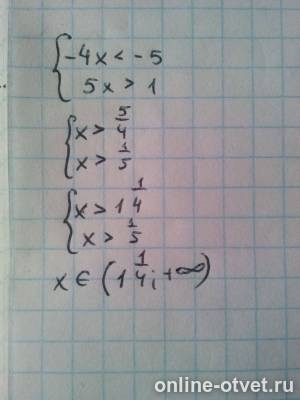 -4x < -5
5x > 1
x > 5/4
x > 1/5
x > 1 1/4
x > 1/5
x ∈ (1 1/4; +∞)
online-otvet.ru